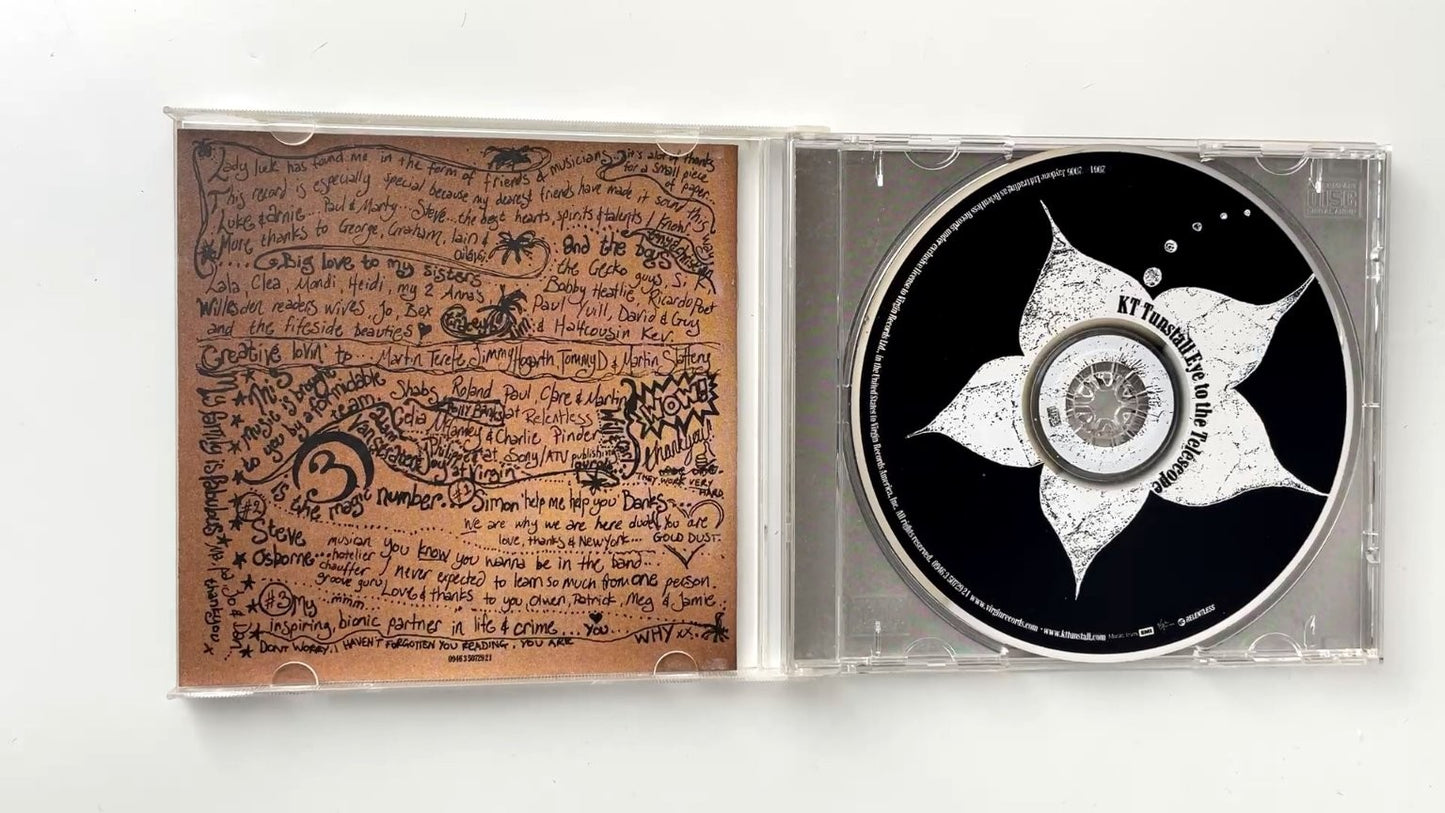 Lady luck has found me in the form of friends & musicians
it's alot of thanks
for a small piece
of paper...
This record is especially special because my dearest friends have made it sound this way
Luke & Arnie... Paul & Marty... Steve... the best hearts, spirits & talents I know!
More thanks to George, Graham, Iain &
...Big love to my sisters
Lala, Clea, Mandi, Heidi, my 2 Anna's
Willesden readers wives, Jo, Bex
and the fireside beauties ♥
and the boys
the Gecko guys, Si, K
Bobby Heatlie, Ricardo Poet
Paul Yuill, David & Guy
& Halfcousin Kev.
Creative lovin' to... Martin Terefe, Jimmy Hogarth, Tommy D & Martin Slattery
this
music is brought
to you by a formidable
team
Shabs, Roland, Paul, Clare & Martin
at Relentless
Polly Banks
& Charlie Pinder
at Sony/ATV publishing
at Virgin
WOW!
thankyou!
THEY WORK VERY
HARD.
3
is the magic number...
#1 Simon 'help me help you' Banks...
We are why we are here dude. You are
love, thanks & New York...
GOLD DUST.
#2
Steve
Osborne...
musian
hotelier
chauffer
groove guru
mmm...
you know you wanna be in the band...
I never expected to learn so much from one person.
Love & thanks to you, Olwen, Patrick, Meg & Jamie...
#3 My
inspiring, bionic partner in life & crime... You...
WHY xx
DON'T WORRY, I HAVEN'T FORGOTTEN YOU READING. YOU ARE
My family is fabulous
I thankyou x
0946 3 50729 2 1
KT Tunstall Eye to the Telescope
2004 2006 Relentless Records under exclusive license to Virgin Records Ltd., in the United States to Virgin Records America, Inc. All rights reserved. 0946 3 50729 2 1 www.virginrecords.com • www.kttunstall.com Music from EMI
RELENTLESS
COMPACT
DISC
DIGITAL AUDIO